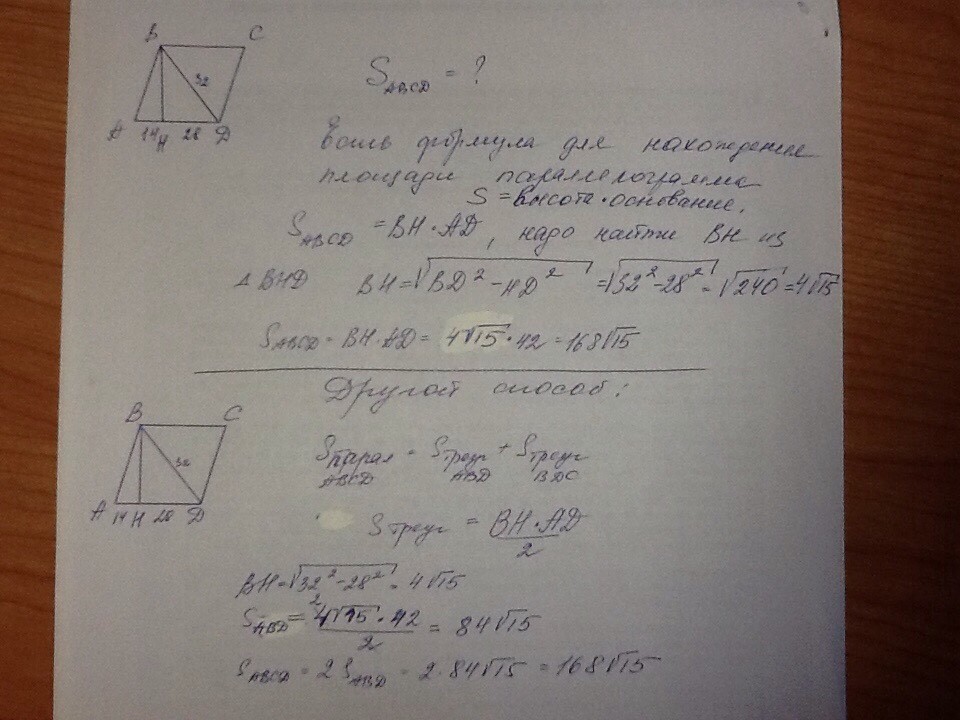 B C
32
A 14 H 28 D
S ABCD = ?
Есть формула для нахождения
площади параллелограмма
S = высота · основание.
S ABCD = BH · AD, надо найти BH из
△ BHD BH = √(BD² - HD²) = √(32² - 28²) = √240 = 4√15
S ABCD = BH · AD = 4√15 · 42 = 168√15
Другой способ:
B C
32
A 14 H 28 D
S парал ABCD = S треуг ABD + S треуг BDC
S треуг = BH · AD / 2
BH = √(32² - 28²) = 4√15
S ABD = 4√15 · 42 / 2 = 84√15
2
S ABCD = 2 S ABD = 2 · 84√15 = 168√15